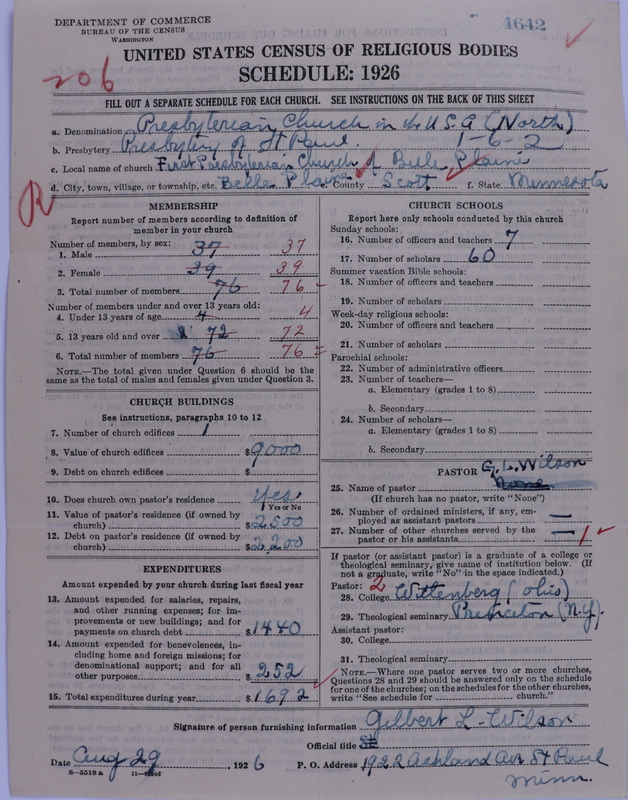 DEPARTMENT OF COMMERCE
BUREAU OF THE CENSUS
WASHINGTON
4642
UNITED STATES CENSUS OF RELIGIOUS BODIES
SCHEDULE: 1926
206
FILL OUT A SEPARATE SCHEDULE FOR EACH CHURCH. SEE INSTRUCTIONS ON THE BACK OF THIS SHEET
a. Denomination Presbyterian Church in the U.S.A (North)
b. Presbytery Presbytery of St Paul. 1-6-2
c. Local name of church First Presbyterian Church of Belle Plaine
d. City, town, village, or township, etc. Belle Plaine e. County Scott f. State Minnesota
R
MEMBERSHIP
Report number of members according to definition of
member in your church
Number of members, by sex:
1. Male 37 37
2. Female 39 39
3. Total number of members 76 76
Number of members under and over 13 years old:
4. Under 13 years of age 4 4
5. 13 years old and over 72 72
6. Total number of members 76 76
NOTE.—The total given under Question 6 should be
same as the total of males and females given under Question 3.
CHURCH BUILDINGS
See instructions, paragraphs 10 to 12
7. Number of church edifices 1
8. Value of church edifices $9000
9. Debt on church edifices $
10. Does church own pastor's residence Yes
Yes or No
11. Value of pastor's residence (if owned by
church) $2500
12. Debt on pastor's residence (if owned by
church) $2,200
EXPENDITURES
Amount expended by your church during last fiscal year
13. Amount expended for salaries, repairs,
and other running expenses; for im-
provements or new buildings; and for
payments on church debt $1440
14. Amount expended for benevolences, in-
cluding home and foreign missions; for
denominational support; and for all
other purposes $252
15. Total expenditures during year $1692
CHURCH SCHOOLS
Report here only schools conducted by this church
Sunday schools:
16. Number of officers and teachers 7
17. Number of scholars 60
Summer vacation Bible schools:
18. Number of officers and teachers
19. Number of scholars
Week-day religious schools:
20. Number of officers and teachers
21. Number of scholars
Parochial schools:
22. Number of administrative officers
23. Number of teachers—
a. Elementary (grades 1 to 8)
b. Secondary
24. Number of scholars—
a. Elementary (grades 1 to 8)
b. Secondary
PASTOR G. L. Wilson
25. Name of pastor None
(If church has no pastor, write "None")
26. Number of ordained ministers, if any, em-
ployed as assistant pastors —
27. Number of other churches served by the
pastor or his assistants — 1
If pastor (or assistant pastor) is a graduate of a college or
theological seminary, give name of institution below. (If
not a graduate, write "No" in the space indicated.)
Pastor: 2
28. College Wittenberg (Ohio)
29. Theological seminary Princeton (N.J.)
Assistant pastor:
30. College
31. Theological seminary
NOTE.—Where one pastor serves two or more churches,
Questions 28 and 29 should be answered only on the schedule
for one of the churches; on the schedules for the other churches,
write "See schedule for church."
Signature of person furnishing information Gilbert L. Wilson
Official title
Date Aug 29, 1926 P. O. Address 1922 Ashland Av. St Paul
8-5518 a Minn.